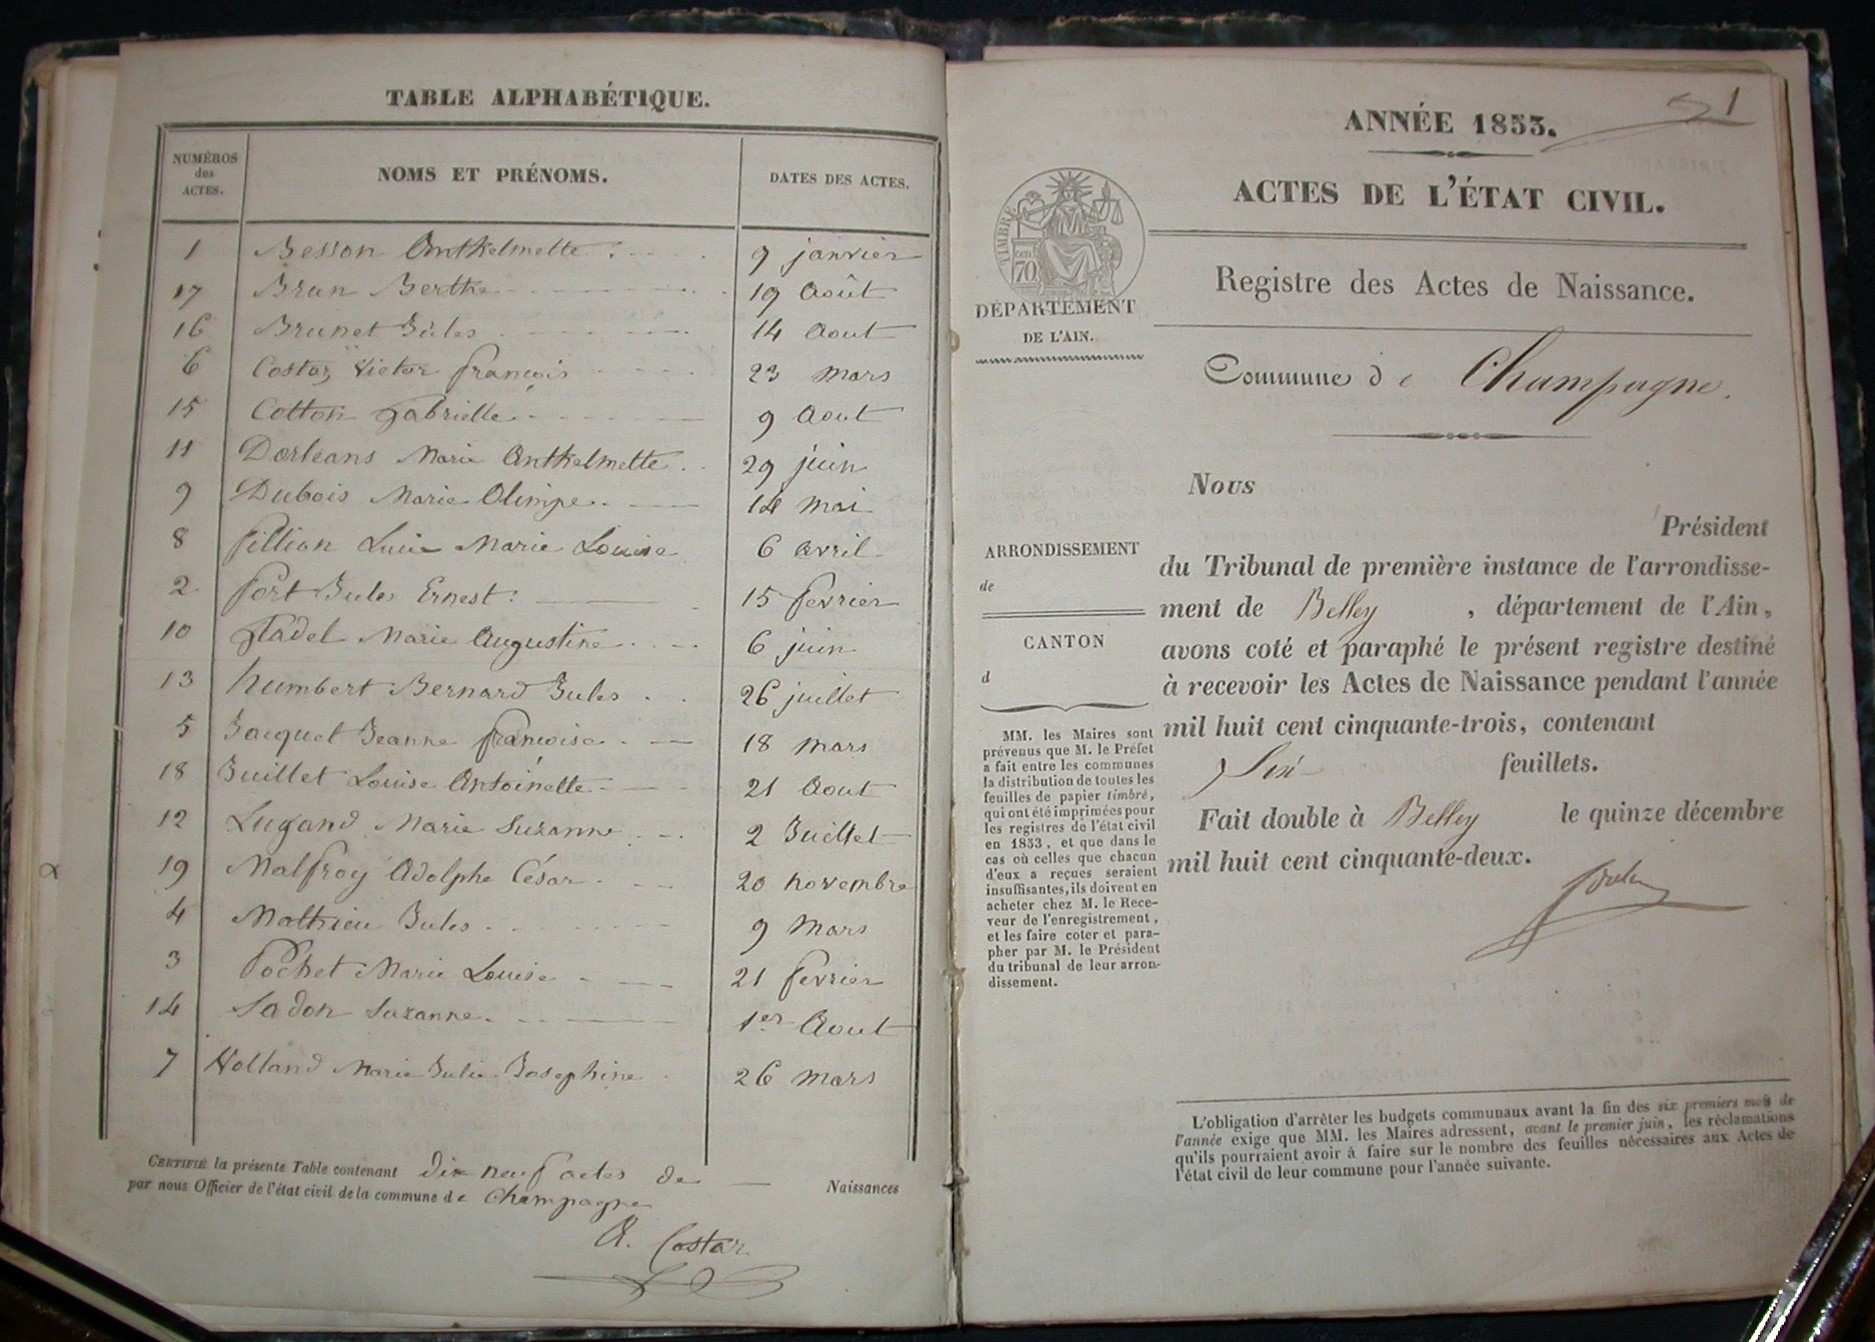 TABLE ALPHABÉTIQUE.
NUMÉROS des ACTES. NOMS ET PRÉNOMS. DATES DES ACTES.
1 Besson Anthelmette 9 janvier
17 Brun Berthe 19 Août
16 Brunet Jules 14 Aout
6 Costaz Victor françois 23 mars
15 Cotton Gabrielle 9 Aout
11 Dorleans Marie Anthelmette 29 juin
9 Dubois Marie Olimpe 14 mai
8 fillion Marie Louise 6 avril
2 fort Jules Ernest 15 fevrier
10 Marie Augustine 6 juin
13 humbert Bernard Jules 26 juillet
5 Jacquet Jeanne françoise 18 mars
18 Juillet Louise Antoinette 21 Aout
12 Lugand Marie Suzanne 2 Juillet
19 Malfroy Adolphe César 20 novembre
4 Mathieu Jules 9 Mars
3 Pochet Marie Louise 21 fevrier
14 Sadon Suzanne 1er Aout
7 Marie Julie Josephine 26 mars
CERTIFIÉ la présente Table contenant dix neuf actes de Naissances
par nous Officier de l'état civil de la commune de Champagne
A. Costaz
1
ANNÉE 1853.
ACTES DE L'ÉTAT CIVIL.
Registre des Actes de Naissance.
Commune de Champagne.
TIMBRE
70
DÉPARTEMENT
DE L'AIN.
ARRONDISSEMENT
de
CANTON
d
MM. les Maires sont
prévenus que M. le Préfet
a fait entre les communes
la distribution de toutes les
feuilles de papier timbré,
qui ont été imprimées pour
les registres de l'état civil
en 1853, et que dans le
cas où celles que chacun
d'eux a reçues seraient
insuffisantes, ils doivent en
acheter chez M. le Rece-
veur de l'enregistrement,
et les faire coter et para-
pher par M. le Président
du tribunal de leur arron-
dissement.
Nous
Président
du Tribunal de première instance de l'arrondisse-
ment de Belley , département de l'Ain,
avons coté et paraphé le présent registre destiné
à recevoir les Actes de Naissance pendant l'année
mil huit cent cinquante-trois, contenant
feuillets.
Fait double à Belley le quinze décembre
mil huit cent cinquante-deux.
L'obligation d'arrêter les budgets communaux avant la fin des six premiers mois de
l'année exige que MM. les Maires adressent, avant le premier juin, les réclamations
qu'ils pourraient avoir à faire sur le nombre des feuilles nécessaires aux Actes de
l'état civil de leur commune pour l'année suivante.